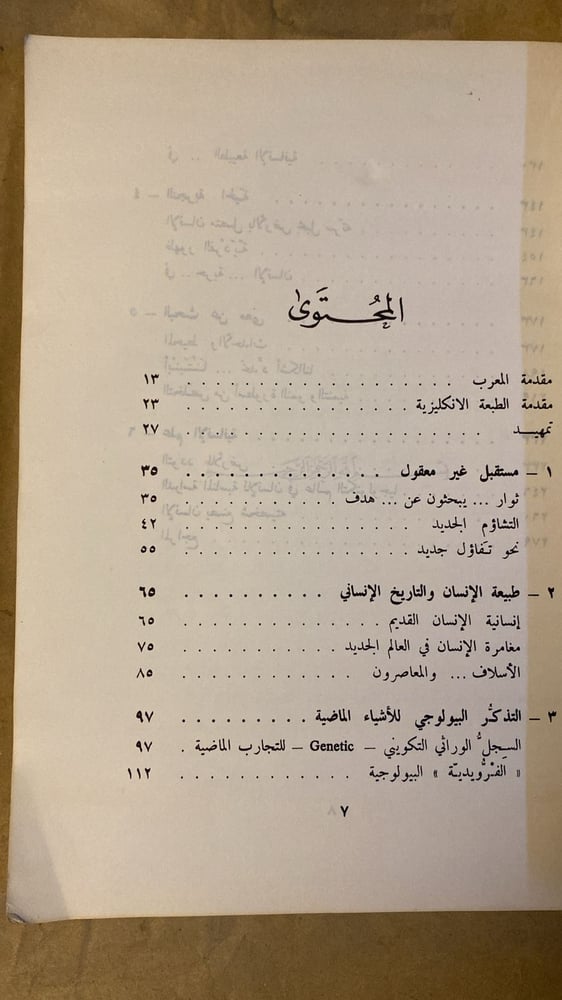 المحُتوَىٰ
مقدمة المعرب . . . . . . . . . . . . . . . ١٣
مقدمة الطبعة الانكليزية . . . . . . . . . . . . ٢٣
تمهيـــد . . . . . . . . . . . . . . . . . ٢٧
١ – مستقبل غير معقول . . . . . . . . . . . . ٣٥
ثوار ... يبحثون عن ... هدف . . . . . . . . . ٣٥
التشاؤم الجديد . . . . . . . . . . . . . ٤٢
نحو تَفاؤل جديد . . . . . . . . . . . . ٥٥
٢ – طبيعة الإنسان والتاريخ الإنساني . . . . . . . . . . ٦٥
إنسانية الإنسان القديم . . . . . . . . . . . . ٦٥
مغامرة الإنسان في العالم الجديد . . . . . . . . . . ٧٥
الأسلاف ... والمعاصرون . . . . . . . . . . . ٨٥
٣ – التذكّر البيولوجي للأشياء الماضية . . . . . . . . . ٩٧
السِجلُّ الوراثي التكويني – Genetic – للتجارب الماضية . ٩٧
« الفرْويديـّة » البيولوجية . . . . . . . . . . . . ١١٢
٧